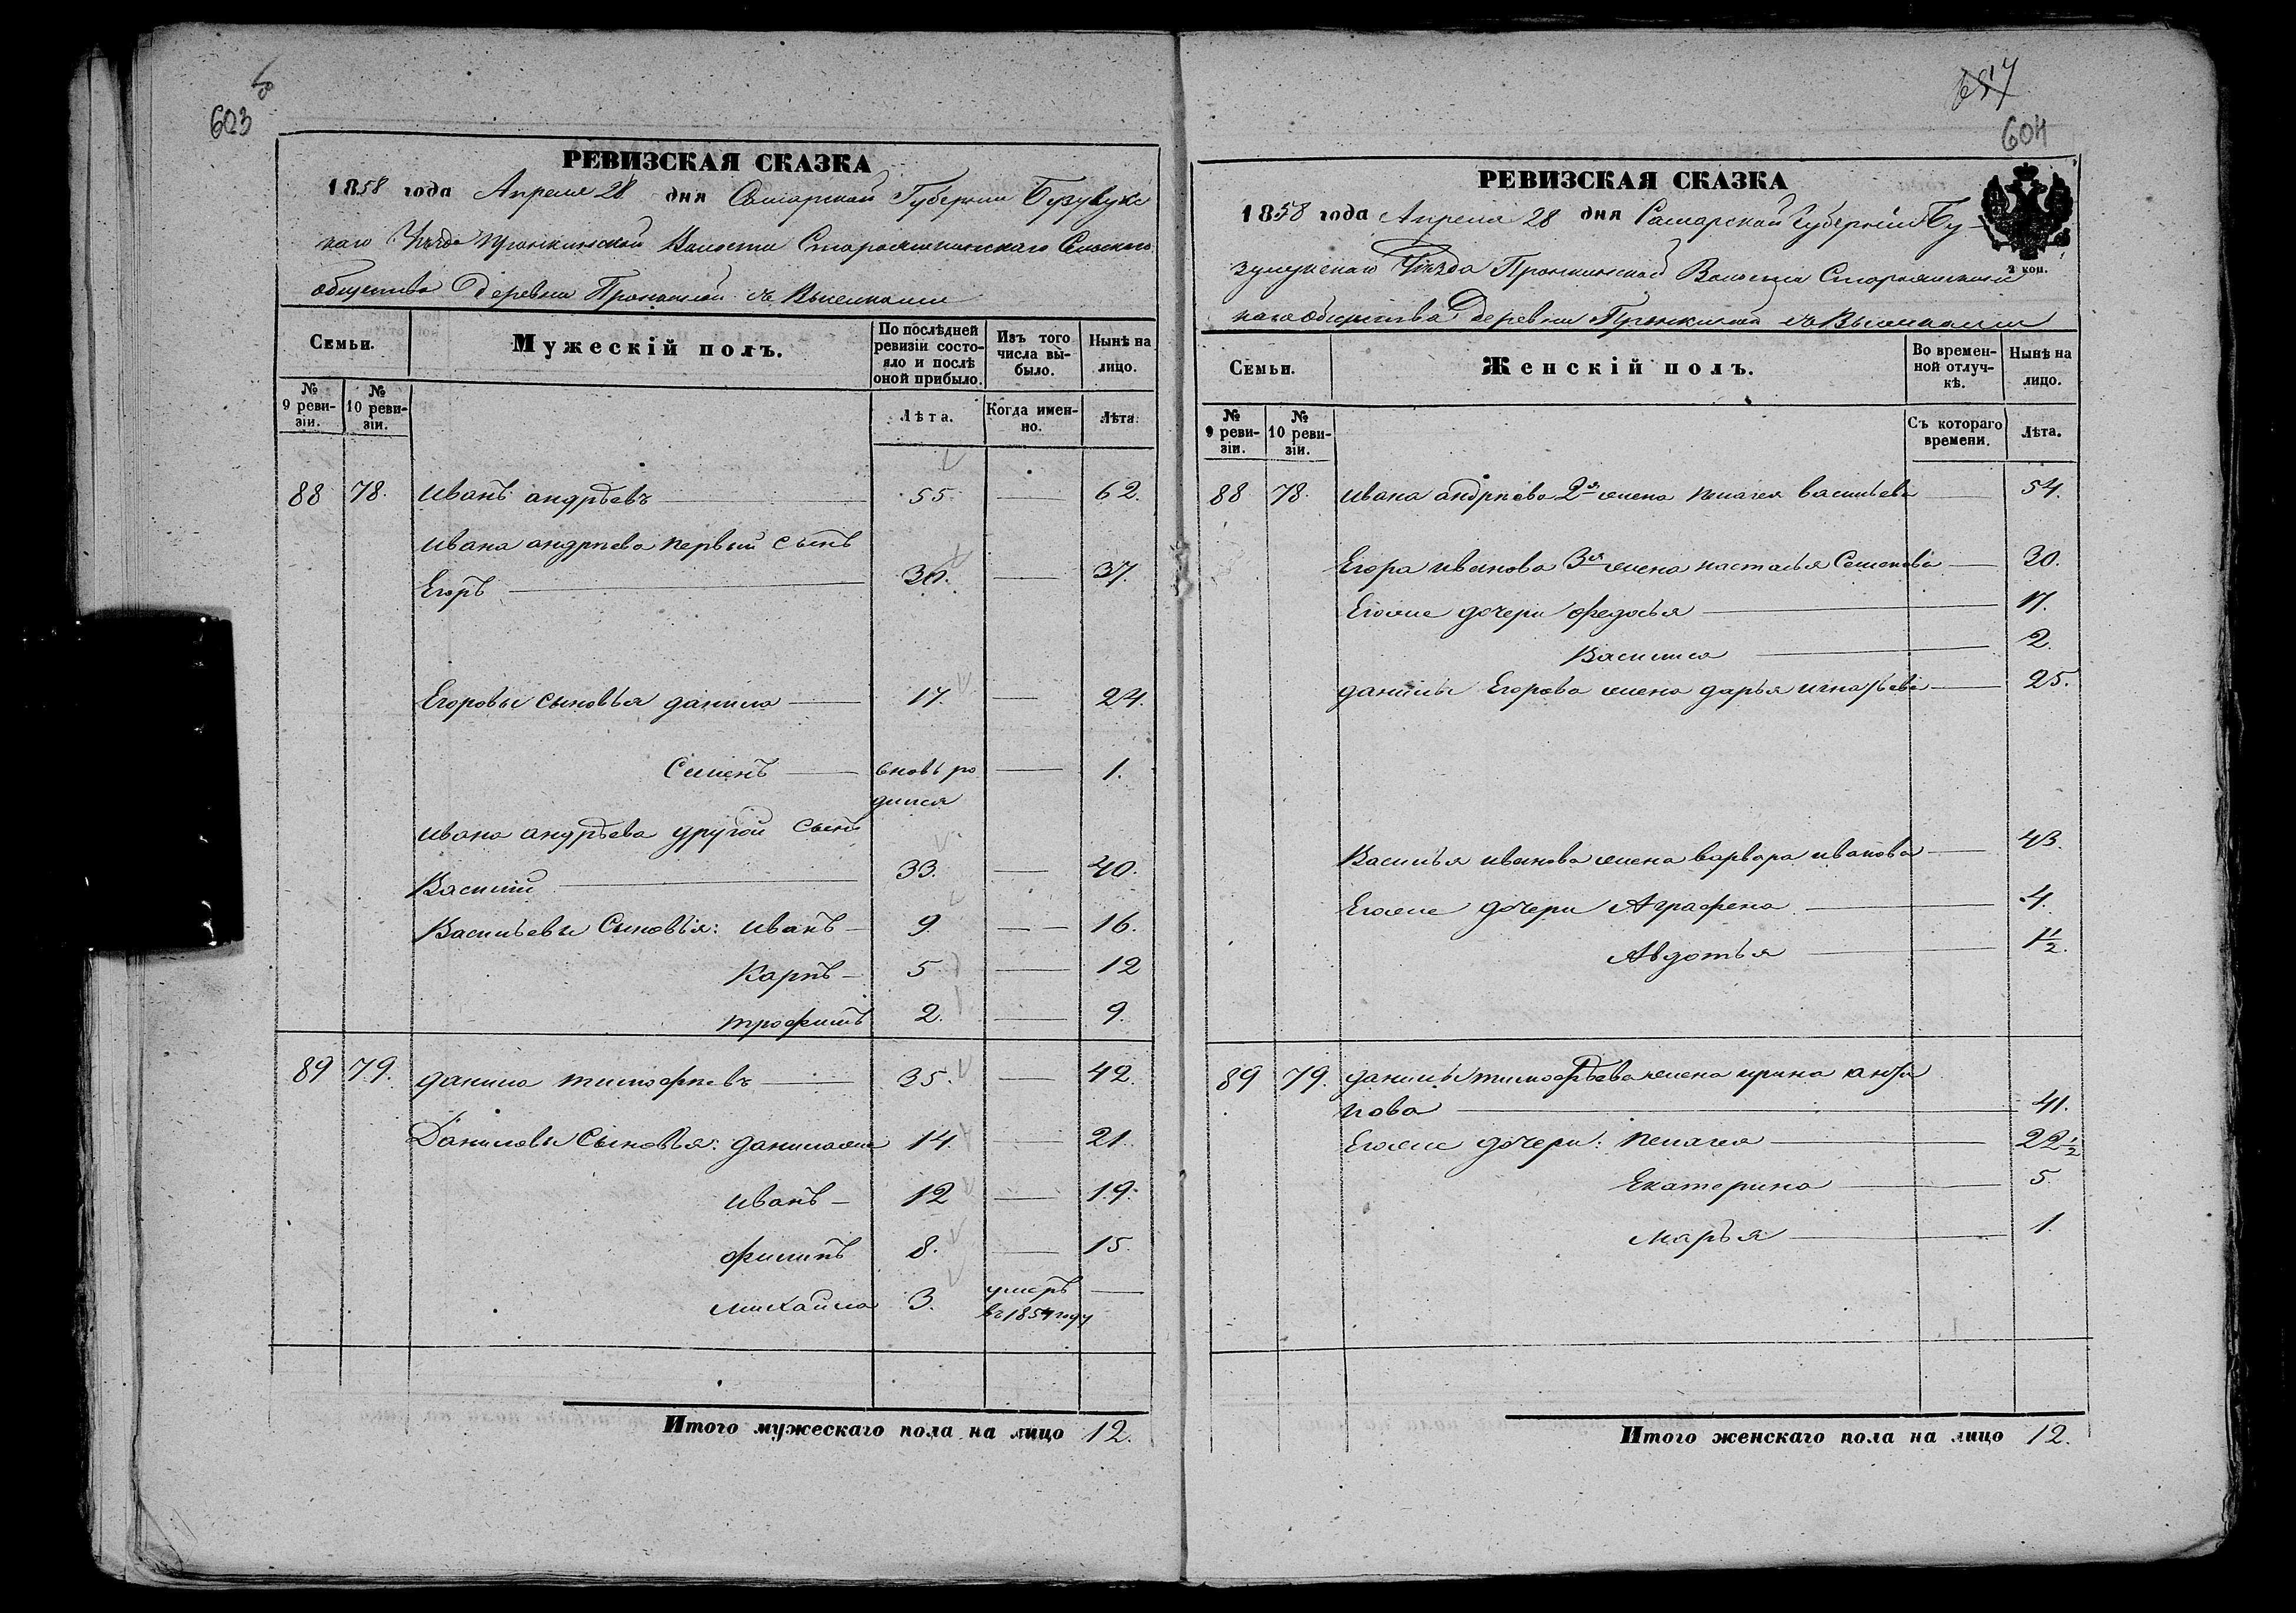 603
РЕВИЗСКАЯ СКАЗКА
1858 года Апреля 28 дня Самарской Губернии Бузулукс
каго Уѣзда Пронкинской Волости Сельскаго
общества Деревни Пронькиной съ Выселками
Семьи.
Мужескій полъ.
По послѣдней ревизіи состояло и послѣ оной прибыло.
Изъ того числа выбыло.
Нынѣ на лицо.
№ 9 ревизіи.
№ 10 ревизіи.
Лѣта.
Когда именно.
Лѣта.
88 78. Иванъ андрѣевъ 55. 62.
Ивана андрѣева первый сынъ
Егоръ 30. 37.
Егоровы сыновья данила 17. 24.
Семенъ вновь ро 1.
дился
Ивана андрѣева другой сынъ
Василий 33. 40.
Васильевы Сыновья: Иванъ 9 16.
Карпъ 5 12
трофимъ 2. 9.
89 79. данила тимофѣевъ 35. 42.
Даниловы Сыновья: данила же 14. 21.
иванъ 12 19.
филипъ 8. 15.
михайла 3. умеръ
въ 1854 году
Итого мужескаго пола на лицо 12.
604
РЕВИЗСКАЯ СКАЗКА
1858 года Апреля 28 дня Самарской Губерніи Бу
зулукскаго Уѣзда Пронкинской Волости
каго Общества Деревни Пронкиной съ Выселками
2 коп.
Семьи.
Женскій полъ.
Во временной отлучкѣ.
Нынѣ на лицо.
№ 9 ревизіи.
№ 10 ревизіи.
Съ котораго времени.
Лѣта.
88 78. Ивана андрѣева 2я жена пелагея васильева 54.
Егора иванова 3я жена настасья Семенова 30.
Его же дочери федосья 17.
Василиса 2.
данилы Егорова жена дарья игнатьева 25.
Василья иванова жена варвара иванова 43.
Его же дочери Аграфена 4.
Авдотья 1½.
89 79. данилы тимофѣева жена ирина анти
пова 41.
Его же дочери: пелагея 22½
Екатерина 5.
марья 1.
Итого женскаго пола на лицо 12.